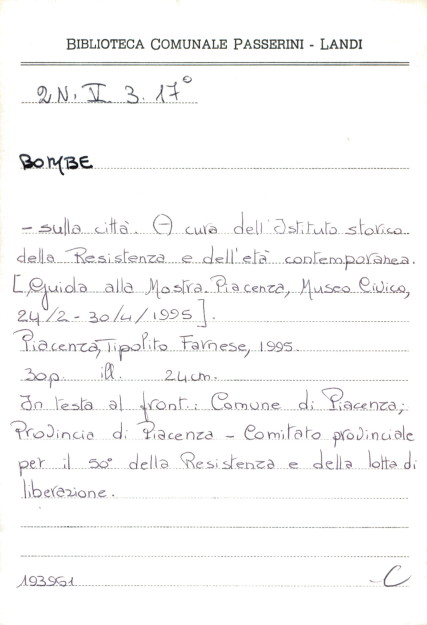 BIBLIOTECA COMUNALE PASSERINI - LANDI
2N. V 3. 17°
BOMBE
- sulla città. (-) cura dell'Istituto storico
della Resistenza e dell'età contemporanea.
[Guida alla Mostra. Piacenza, Museo Civico,
24/2 - 30/4/1995].
Piacenza, Tipolito Farnese, 1995.
30p. ill. 24cm.
In testa al front.: Comune di Piacenza;
Provincia di Piacenza - Comitato provinciale
per il 50° della Resistenza e della lotta di
liberazione.
193961 C